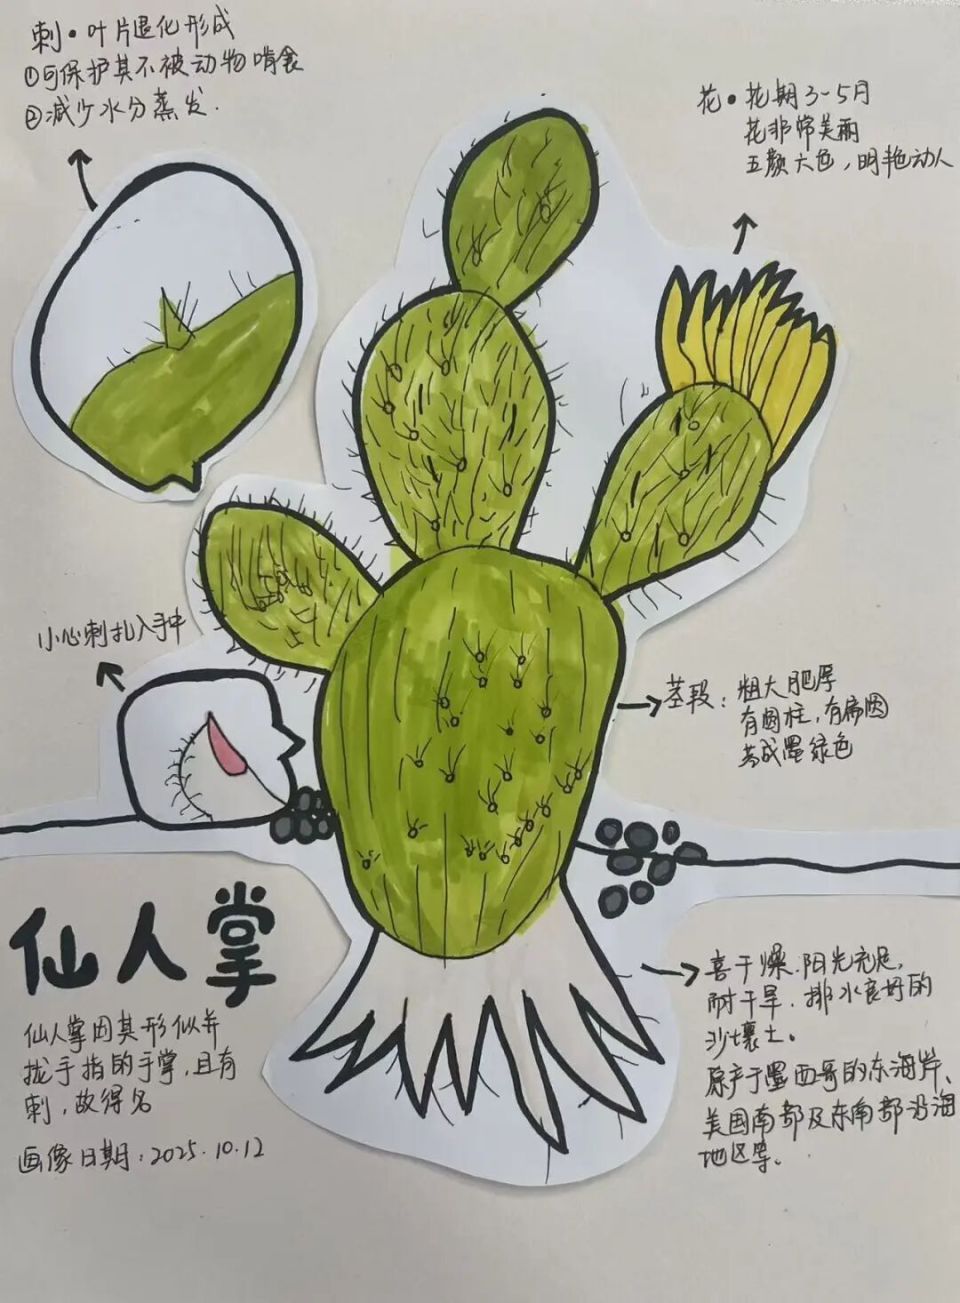 刺·叶片退化形成
①可保护其不被动物啃食
②减少水分蒸发.
花·花期3-5月
花非常美丽
五颜六色，明艳动人
小心刺扎入手中
茎段：粗大肥厚
有圆柱，有扁圆
墨绿色
仙人掌
仙人掌因其形似并
拢手指的手掌，且有
刺，故得名
画像日期：2025.10.12
喜干燥.阳光充足，
耐干旱.排水良好的
沙壤土。
原产于墨西哥的东海岸、
美国南部及东南部沿海
地区等。